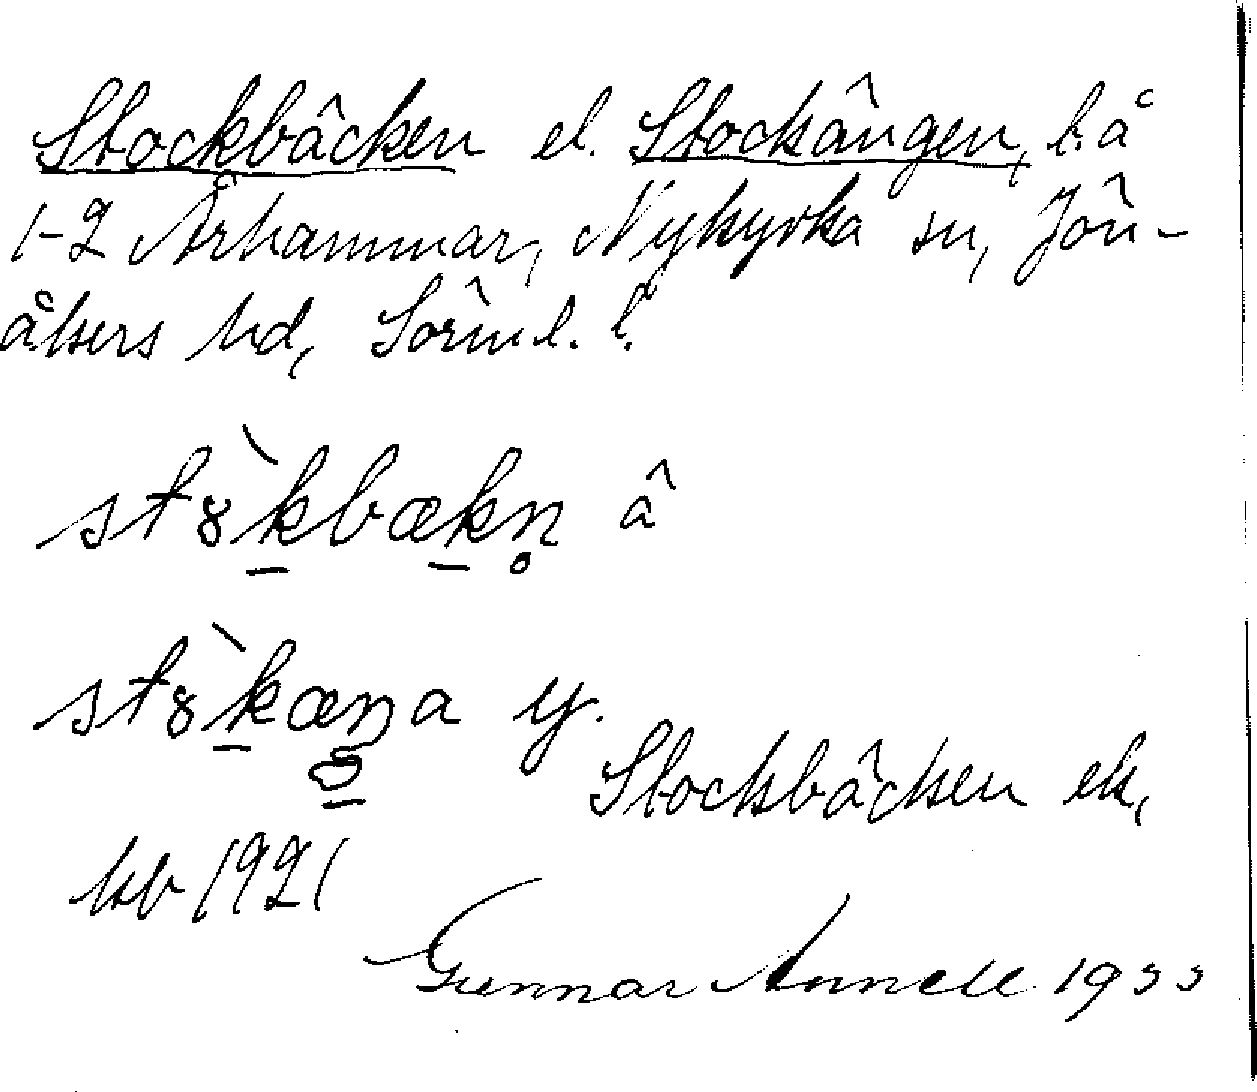 Stockbäcken el. Stockängen, t. å
1-2 Århammar, Nykyrka sn, Jön-
åkers hd, Sörml. l.
st8̀kbækn̥ ä
st8̀kæŋa y.
Stockbäcken ek,
kb 1921
Gunnar Annell 1933